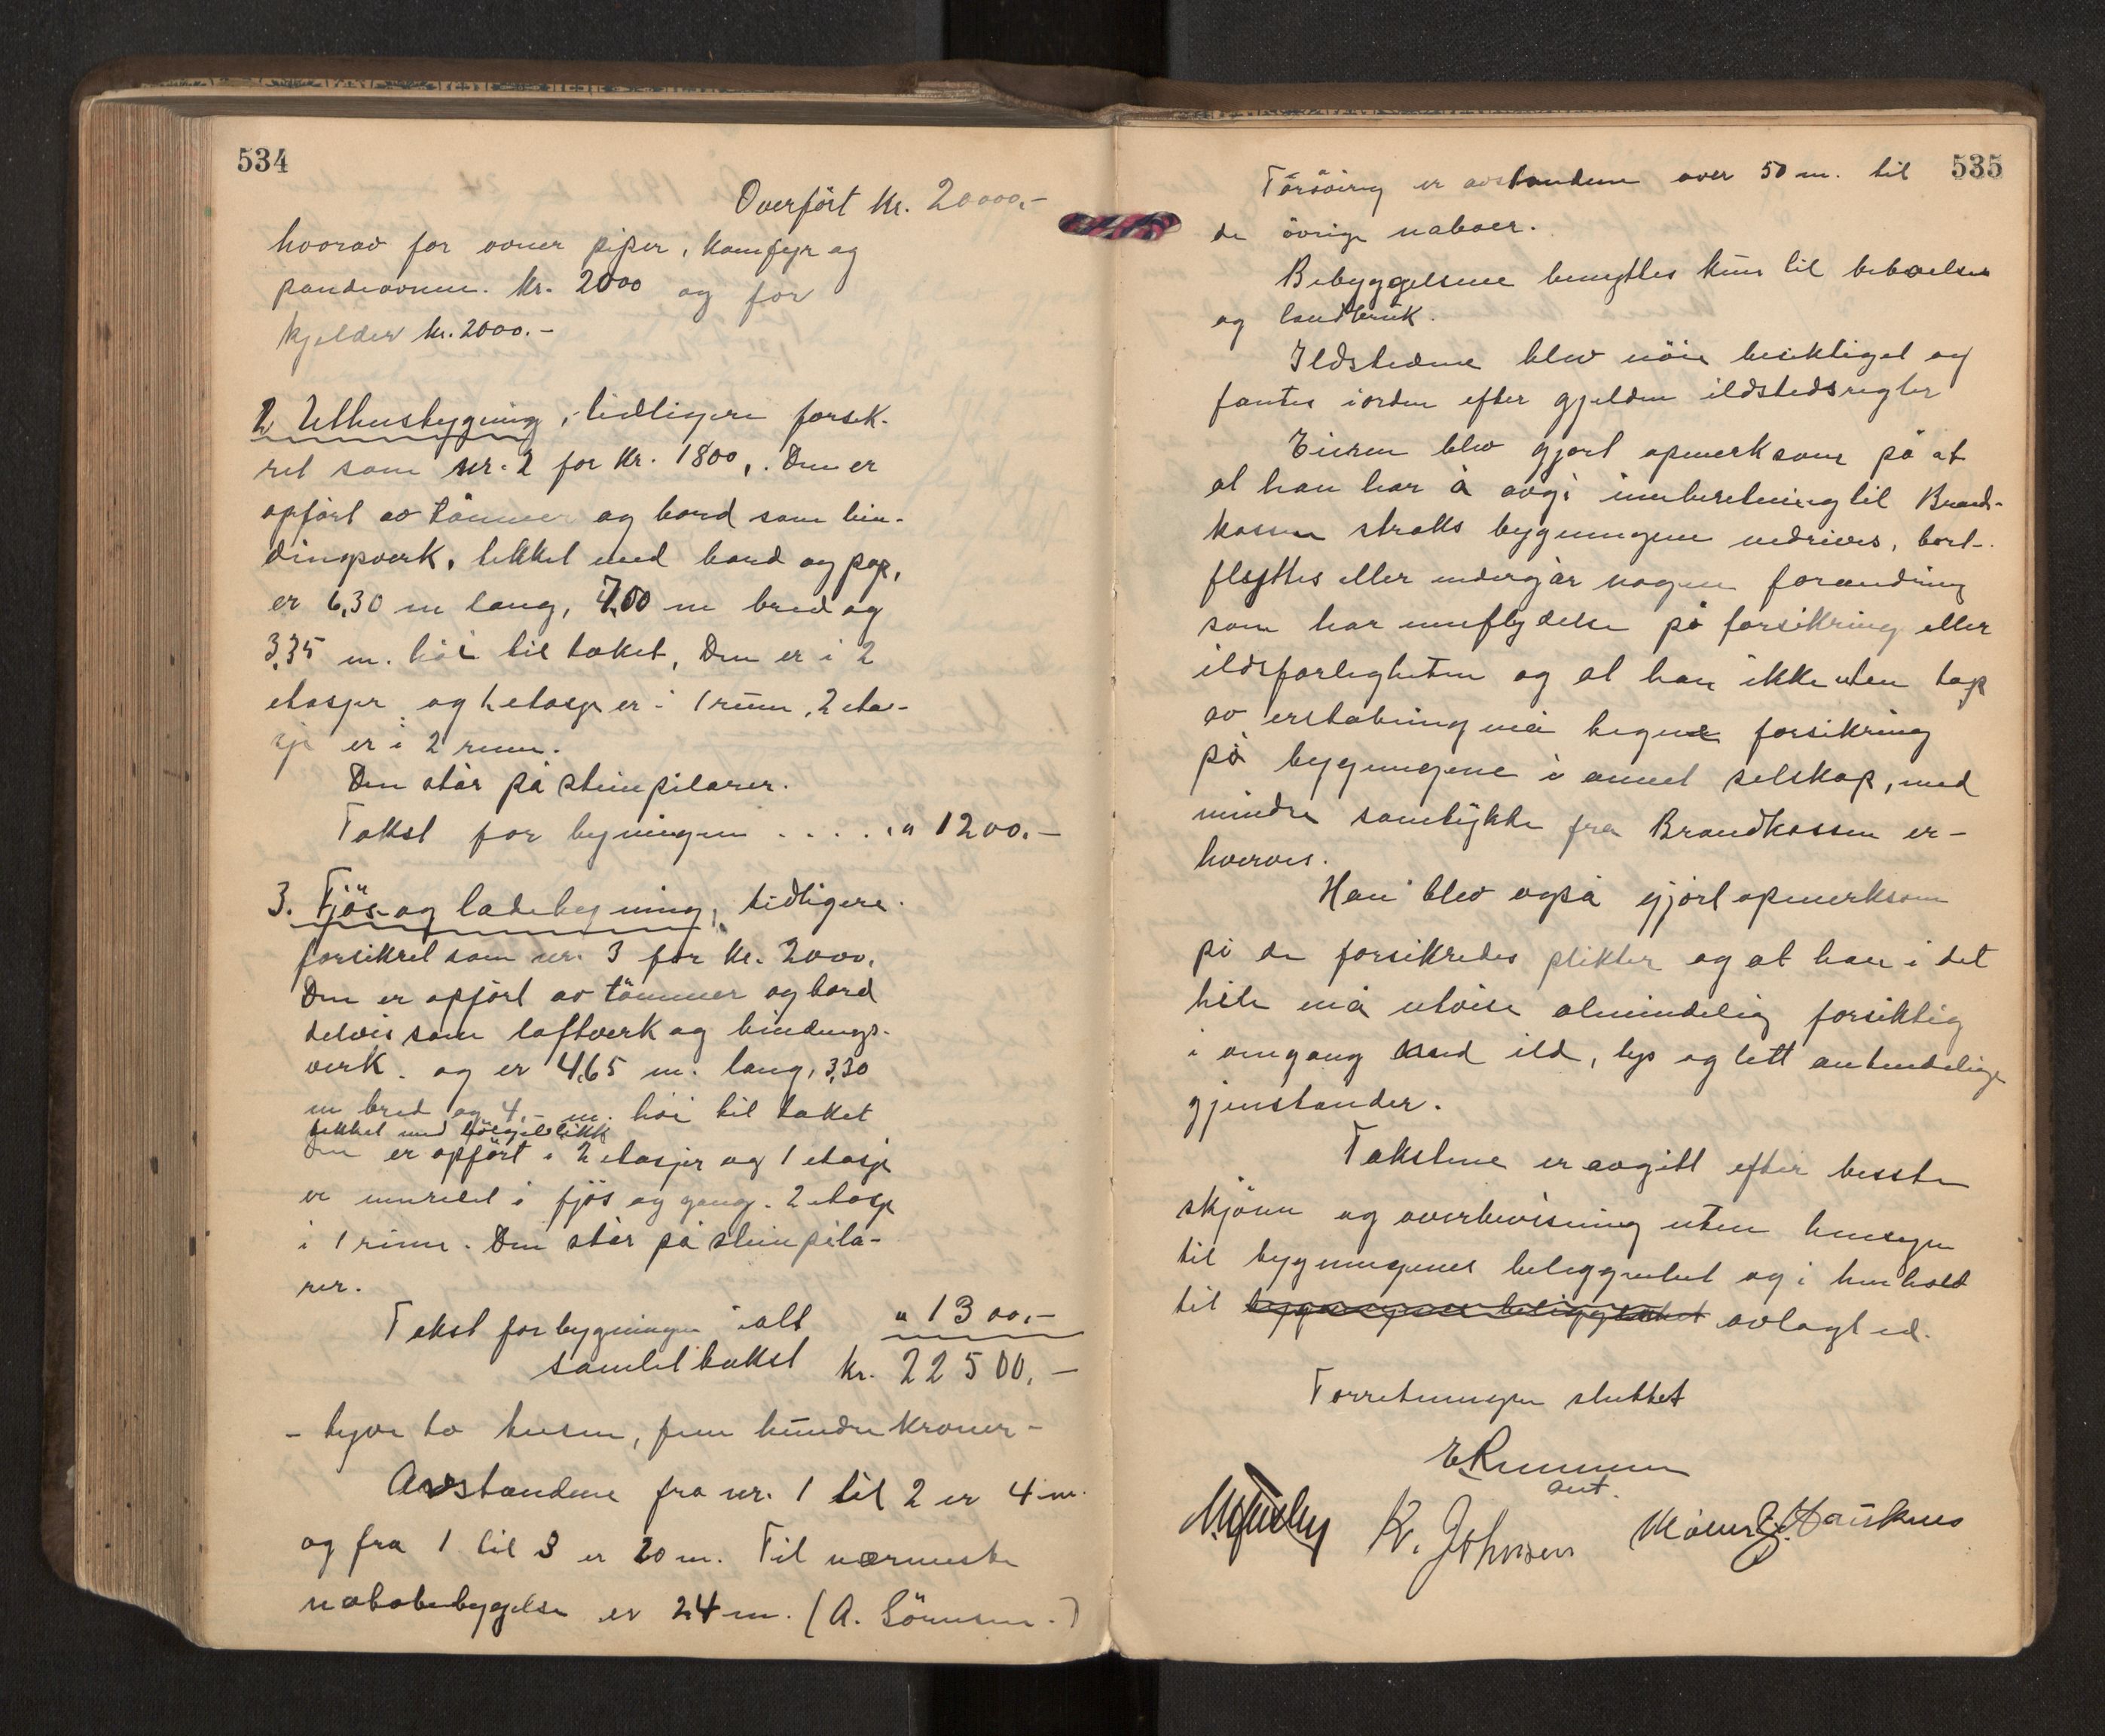 534
Overført kr. 20000,-
hvorav for ovner piper, komfyr og
pandeovner. kr. 2000 og for
kjelder kr. 2000.-
2 Uthusbygning, tidligere forsik-
ret som nr. 2 for kr. 1800,. Den er
opført av tömmer og bord som bin-
dingsverk, tekket med bord og pap,
er 6,30 m lang, 4,00 m bred og
3,35 m. höi til taket, Den er i 2
etasjer og 1 etasje er i 1 rum, 2 eta-
sje er i 2 rum.
Den står på stenpilarer.
Takst for bygningen . . . . . " 1200.-
3. Fjös- og ladebygning, tidligere
forsikret som nr. 3 for kr. 2000.
Den er opfört av tömmer og bord
delvis som laftverk og bindings-
verk. og er 4,65 m. lang, 3,30
m bred og 4,- m. höi til taket
tekket med bölgeblikk
Den er opfört i 2 etasjer og 1 etasje
er innredet i fjös og gang. 2 etasje
i 1 rum. Den står på stenpila-
rer.
Takst for bygningen ialt " 1300,-
samlet takst kr. 22500,-
- tyve to tusen, fem hundre kroner -
Avstandene fra nr. 1 til 2 er 4 m.
og fra 1 til 3 er 20 m. Til nærmeste
nabobebyggelse er 24 m. (A. Sörensen.)
535
Forövrig er avstandene over 50 m. til
de övrige naboer.
Bebyggelsene benyttes kun til beboelse
og landbruk.
Ildstedene blev nöie besiktiget og
fantes iorden efter gjelden ildstedsregler
Eieren blev gjort opmerksom på at
at han har å avgi innberetning til Brand-
kassen straks bygningene nedrives, bort-
flyttes eller undergår nogen forandring
som har innflydelse på forsikring eller
ildsfarligheten og at han ikke uten tap
av erstatning må tegne forsikring
på bygningene i annet selskap, med
mindre samtykke fra Brandkassen er-
hverves.
Han blev også gjort opmerksom
på de forsikredes plikter og at han i det
hele må utvise almindelig forsiktig
i omgang med ild, lys og lett antendelige
gjenstander.
Takstene er avgitt efter beste
skjönn og overbevisning uten hensyn
til bygningenes beliggenhet og i henhold
til bygningenes beliggenhet avlagt ed.
Forretningen sluttet
ast.
K. Johnsen